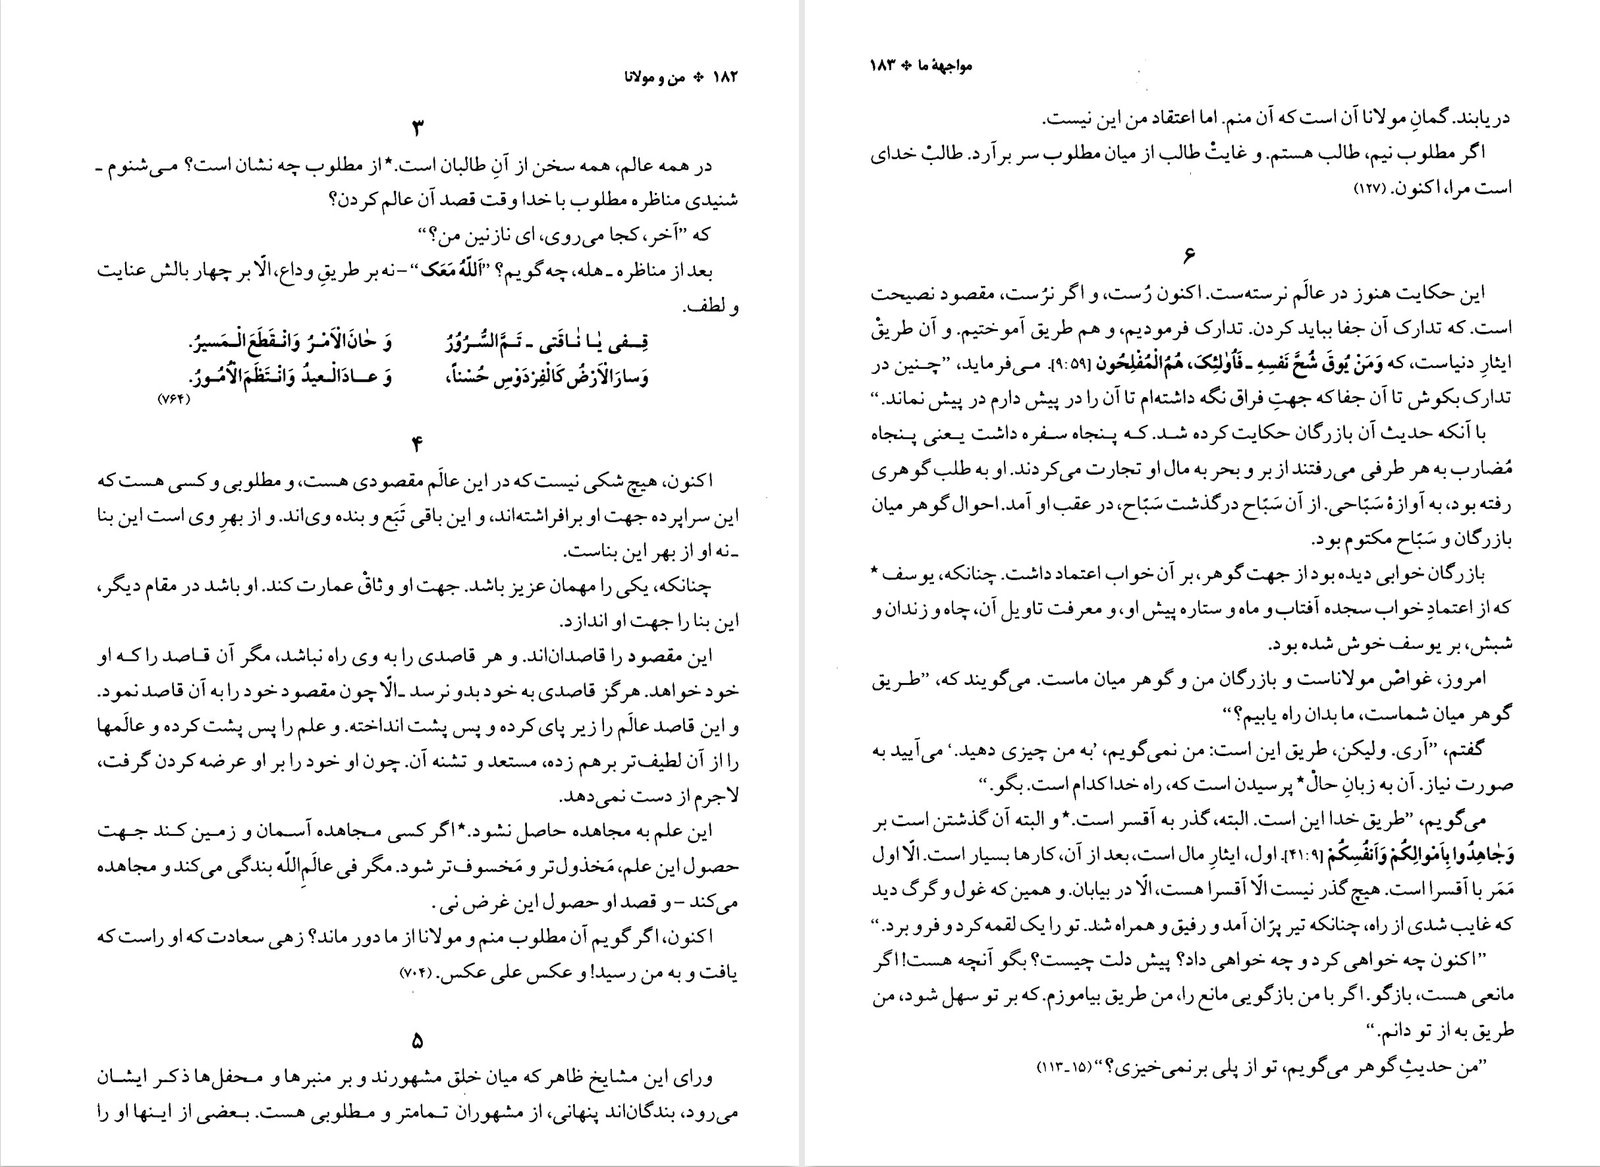 ۱۸۲ ✣ من و مولانا
۳
در همه عالم، همه سخن از آنِ طالبان است.* از مطلوب چه نشان است؟ می‌شنوم ـ
شنیدی مناظره مطلوب با خدا وقت قصد آن عالم کردن؟
که ”آخر، کجا می‌روی، ای نازنین من؟“
بعد از مناظره ـ هله، چه گویم؟ ”اَللّهُ مَعَک“ – نه بر طریقِ وداع، الّا بر چهار بالش عنایت
و لطف.
قِـفـی یٰـا نٰـاقَتی ـ تَـمَّ السُّـرُوُرُ وَ حٰانَ الْاَمْـرُ وَانْـقَطَعَ الْـمَسیرُ.
وَسارَ الْاَرْضُ کَالْفِرْدَوْسِ حُسْناً، وَ عـادَ الْـعیدُ وَانْـتَظَمَ الْاُمُـورُ.
(۷۶۴)
۴
اکنون، هیچ شکی نیست که در این عالَم مقصودی هست، و مطلوبی و کسی هست که
این سراپرده جهت او برافراشته‌اند، و این باقی تَبَع و بنده وی‌اند. و از بهرِ وی است این بنا
ـ نه او از بهر این بناست.
چنانکه، یکی را مهمان عزیز باشد. جهت او وثاقْ عمارت کند. او باشد در مقام دیگر،
این بنا را جهت او اندازد.
این مقصود را قاصدان‌اند. و هر قاصدی را به وی راه نباشد، مگر آن قـاصد را کـه او
خود خواهد. هرگز قاصدی به خود بدو نرسد ـ الّا چون مقصود خود را به آن قاصد نمود.
و این قاصد عالَم را زیر پای کرده و پس پشت انداخته. و علم را پس پشت کرده و عالَمها
را از آن لطیف‌تر برهم زده، مستعد و تشنه آن. چون او خود را بر او عرضه کردن گرفت،
لاجرم از دست نمی‌دهد.
این علم به مجاهده حاصل نشود.* اگر کسی مـجاهده آسـمان و زمـین کـند جـهت
حصول این علم، مَخذول‌تر و مَخسوف‌تر شود. مگر فی عالَمِ‌اللّه بندگی می‌کند و مجاهده
می‌کند – و قصد او حصول این غرض نی.
اکنون، اگر گویم آن مطلوب منم و مولانا از ما دور ماند؟ زهی سعادت که او راست که
یافت و به من رسید! و عکس علی عکس. (۷۰۴)
۵
ورای این مشایخ ظاهر که میان خلق مشهورند و بر منبرها و مـحفل‌ها ذکـر ایشـان
می‌رود، بندگان‌اند پنهانی، از مشهوران تـمامتر و مـطلوبی هست. بـعضی از ایـنها او را
مواجههٔ ما ✣ ۱۸۳
دریابند. گمانِ مولانا آن است که آن منم. اما اعتقاد من این نیست.
اگر مطلوب نیم، طالب هستم. و غایتْ طالب از میان مطلوب سر برآرد. طالبْ خدای
است مرا، اکنون. (۱۲۷)
۶
این حکایت هنوز در عالَم نرسته‌ست. اکنون رُست، و اگر نرُست، مقصود نصیحت
است. که تدارک آن جفا بباید کردن. تدارک فرمودیم، و هم طریق آموختیم. و آن طریقْ
ایثارِ دنیاست، که وَمَنْ یُوقَ شُحَّ نَفسِهِ ـ فَأُولٰئِکَ، هُمُ الْمُفْلِحُون [۹:۵۹]. مـی‌فرماید، ”چـنین در
تدارک بکوش تا آن جفا که جهتِ فراق نگه داشته‌ام تا آن را در پیش دارم در پیش نماند.“
با آنکه حدیث آن بازرگان حکایت کرده شـد. کـه پـنجاه سـفره داشت یـعنی پـنجاه
مُضارب به هر طرفی می‌رفتند از بر و بحر به مال او تجارت می‌کردند. او به طلب گوهری
رفته بود، به آوازهٔ سَبّاحی. از آن سَبّاح درگذشت سَبّاح، در عقب او آمد. احوال گوهر میان
بازرگان و سَبّاح مکتوم بود.
بازرگان خوابی دیده بود از جهت گوهر، بر آن خواب اعتماد داشت. چنانکه، یوسف*
که از اعتمادِ خواب سجده آفتاب و ماه و ستاره پیش او، و معرفت تاویل آن، چاه و زندان و
شبش، بر یوسف خوش شده بود.
امروز، غواصْ مولاناست و بازرگان من و گوهر میان ماست. می‌گویند که، ”طـریق
گوهر میان شماست، ما بدان راه یابیم؟“
گفتم، ”آری. ولیکن، طریق این است: من نمی‌گویم، ’به من چیزی دهید.‘ می‌آیید به
صورت نیاز. آن به زبانِ حالْ* پرسیدن است که، راه خدا کدام است. بگو.“
می‌گویم، ”طریق خدا این است. البته، گذر به آقسر است.* و البته آن گذشتن است بر
وَجٰاهِدُوا بِاَمْوالِکُمْ وَاَنفُسِکُمْ [۴۱:۹]. اول، ایثارِ مال است، بعد از آن، کارها بسیار است. الّا اول
مَمَر با آقسرا است. هیچ گذر نیست الّا آقسرا هست، الّا در بیابان. و همین که غول و گرگ دید
که غایب شدی از راه، چنانکه تیر پرّان آمد و رفیق و همراه شد. تو را یک لقمه کرد و فرو برد.“
”اکنون چه خواهی کرد و چه خواهی داد؟ پیش دلت چیست؟ بگو آنچه هست! اگر
مانعی هست، بازگو. اگر با من بازگویی مانع را، من طریق بیاموزم. که بر تو سهل شود، من
طریق به از تو دانم.“
”من حدیثِ گوهر می‌گویم، تو از پلی برنمی‌خیزی؟“ (۱۵ـ۱۱۳)